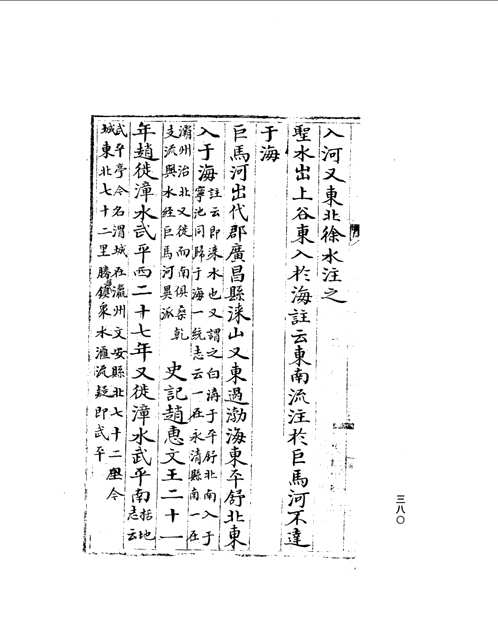 入河又東北徐水注之
聖水出上谷東入於海註云東南流注於巨馬河不達
于海
巨馬河出代郡廣昌縣淶山又東過渤海東平舒北東
入于海
註云即淶水也又謂之白溝于平舒北南入于
寧池同歸于海一統志云一在永清縣南一在
州治北又從而南俱桑乾
支流與水經巨馬河異派
史記趙惠文王二十一
年趙徙漳水武平西二十七年又徙漳水武平南
括地
志云
武平亭今名渭城在瀛州文安縣北七十二里今
城東北七十二里勝鎮衆水滙流疑即武平
三八〇